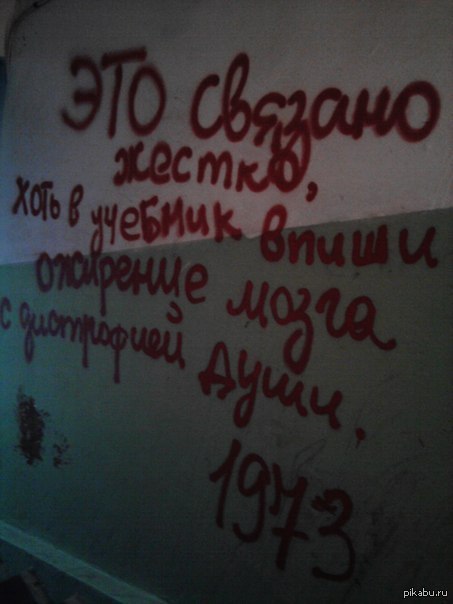 ЭТО связано
жестко,
хоть в учебник впиши
ожирение мозга
с дистрофией души.
1973
pikabu.ru